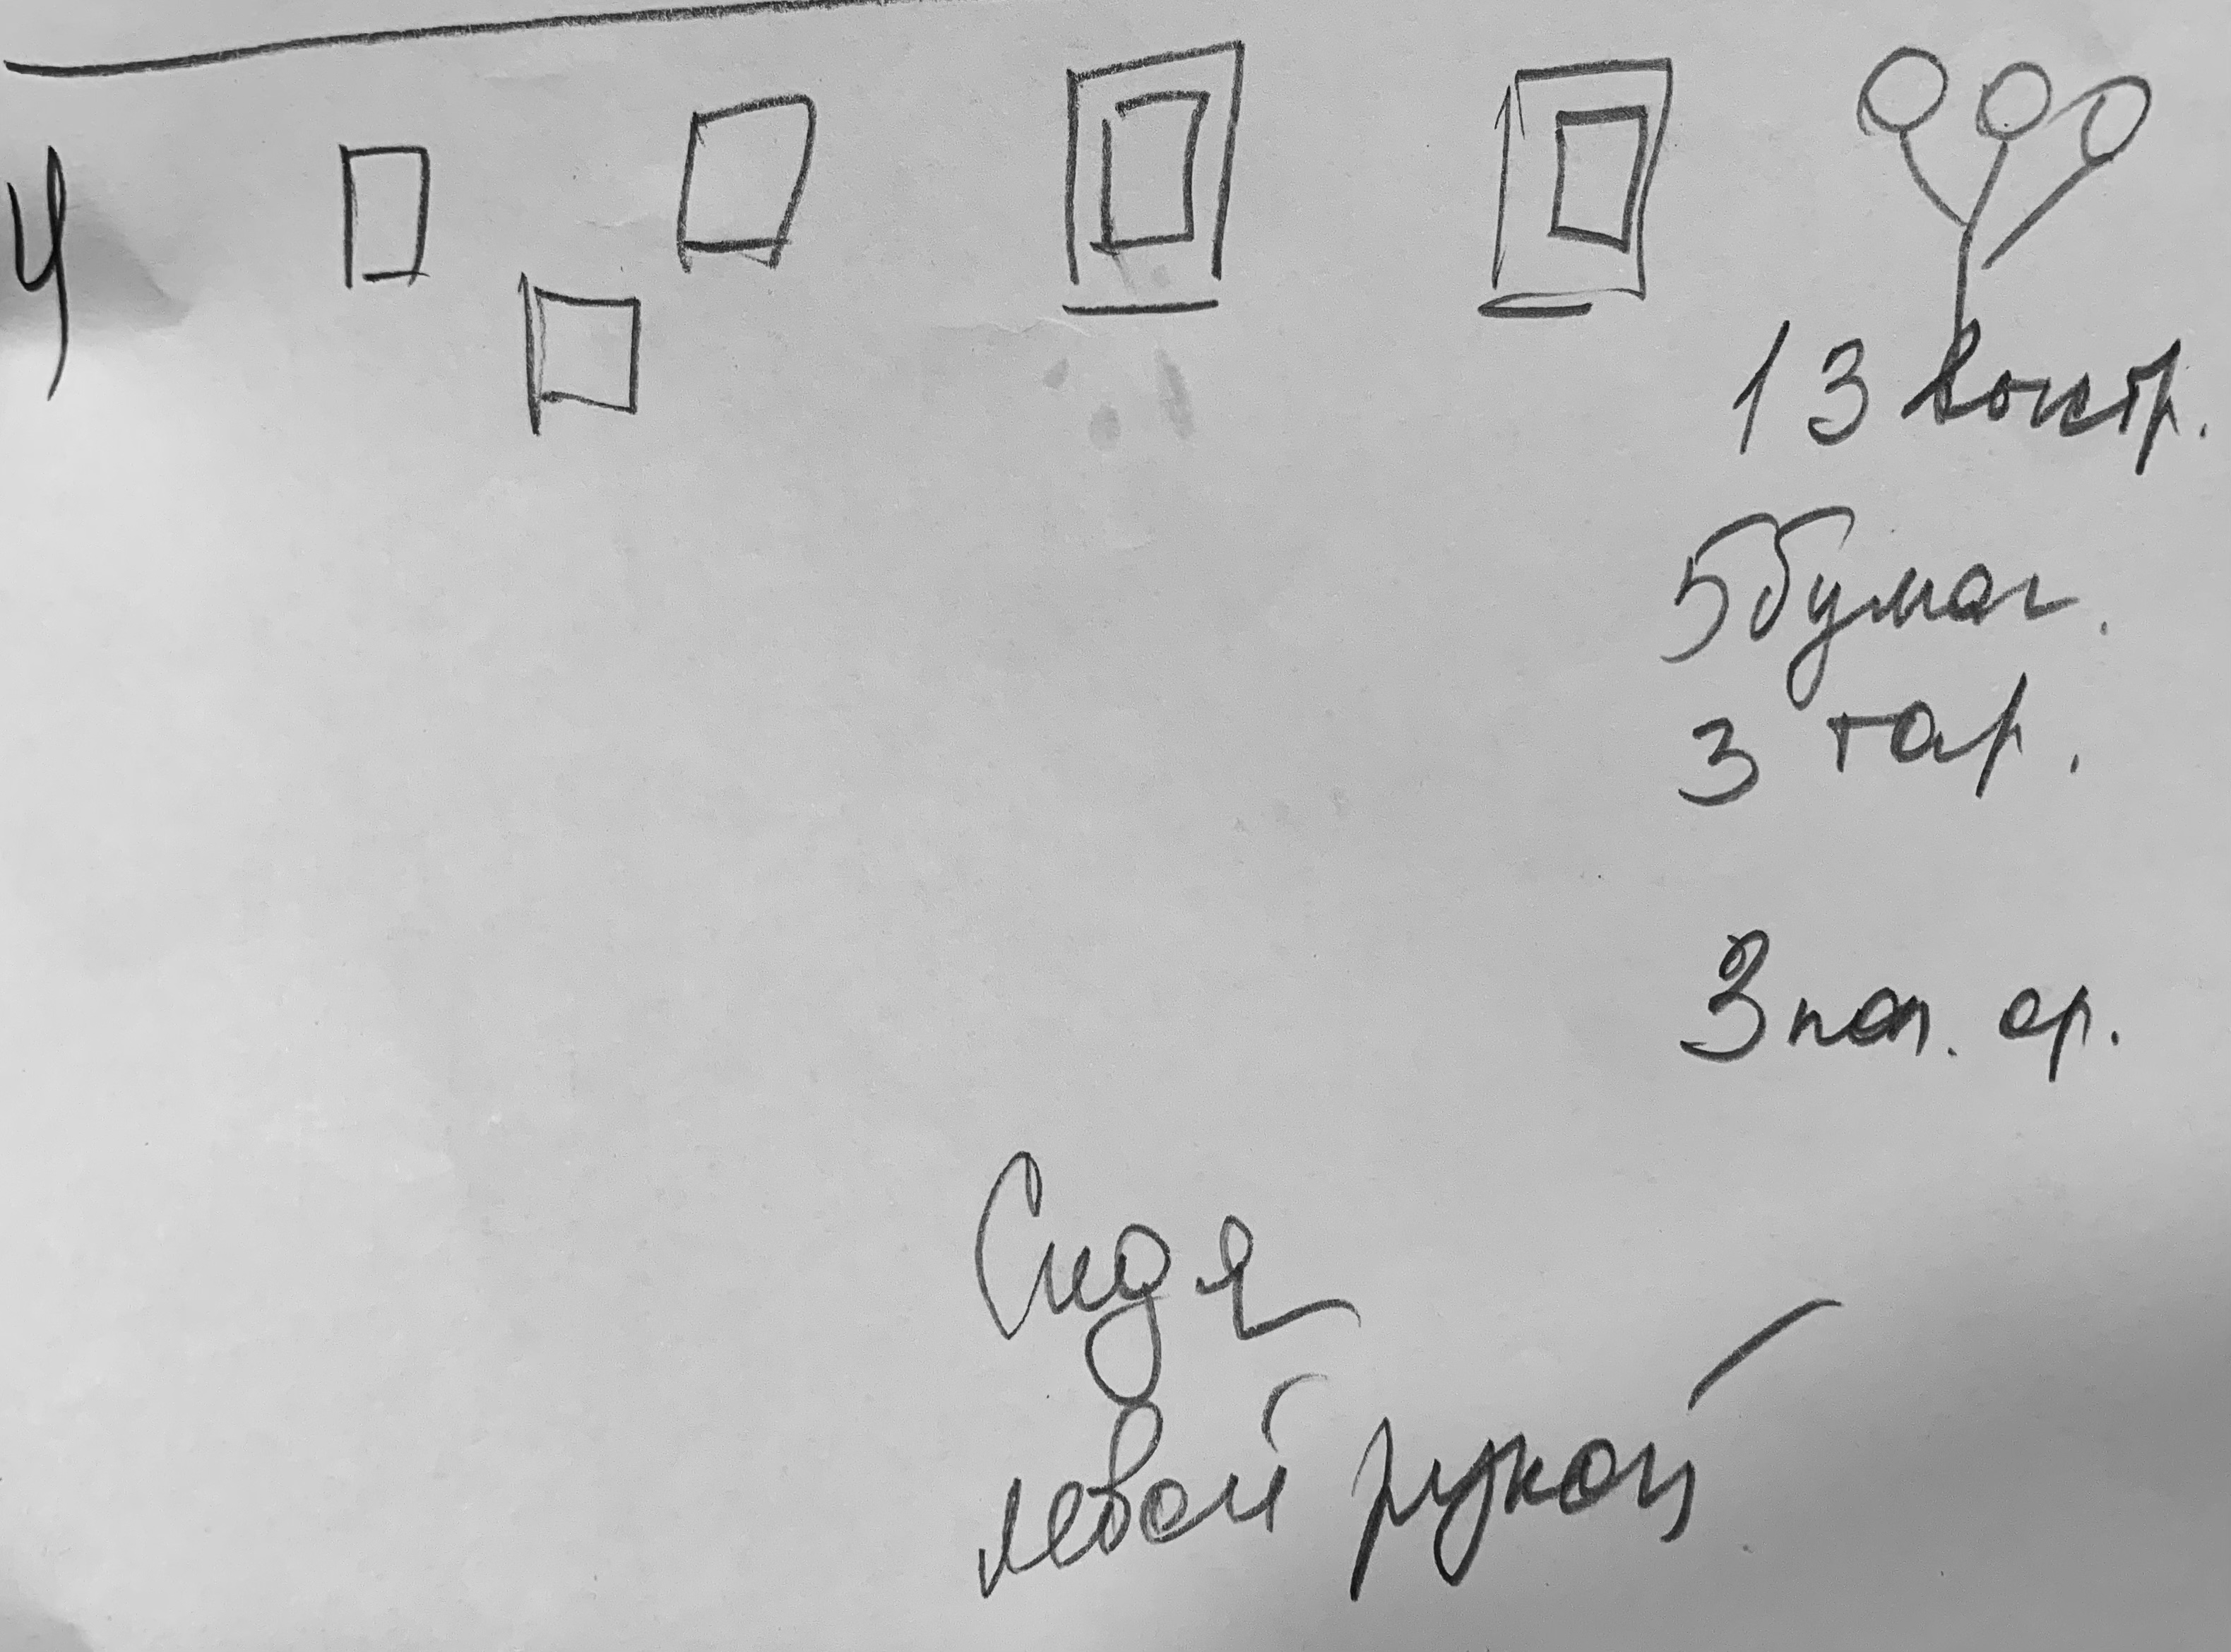 4
13 контр.
5 бумаг.
3 тар.
3 поп. ор.
Сидя
левой рукой